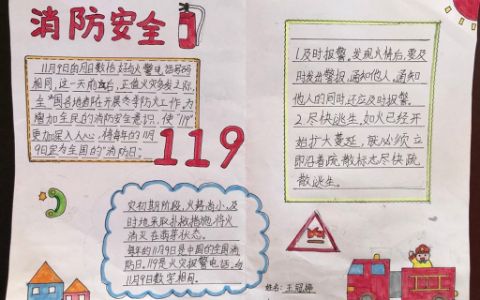 消防安全
11月9日的月日数恰好与火警电话号码
相同,这一天前后,正值火灾多发之际,
全国各地都在开展冬季防火工作,为
增加全民的消防安全意识,使"119"
更加深入人心,将每年的11月
9日定为全国的"消防日"。
119
灾初期阶段,火势尚小,及
时地采取扑救措施,将火
消灭在萌芽状态。
每年的11月9日是中国的全国消
防日。119是火灾报警电话,与
11月9日数字相同。
1.及时报警,发现火情后,要及
时发出警报,通知他人,通知
他人的同时,还应及时报警。
2.尽快逃生,如火已经开
始扩大蔓延,就必须立
即沿着疏散标志尽快疏
散逃生。
姓名:王冠